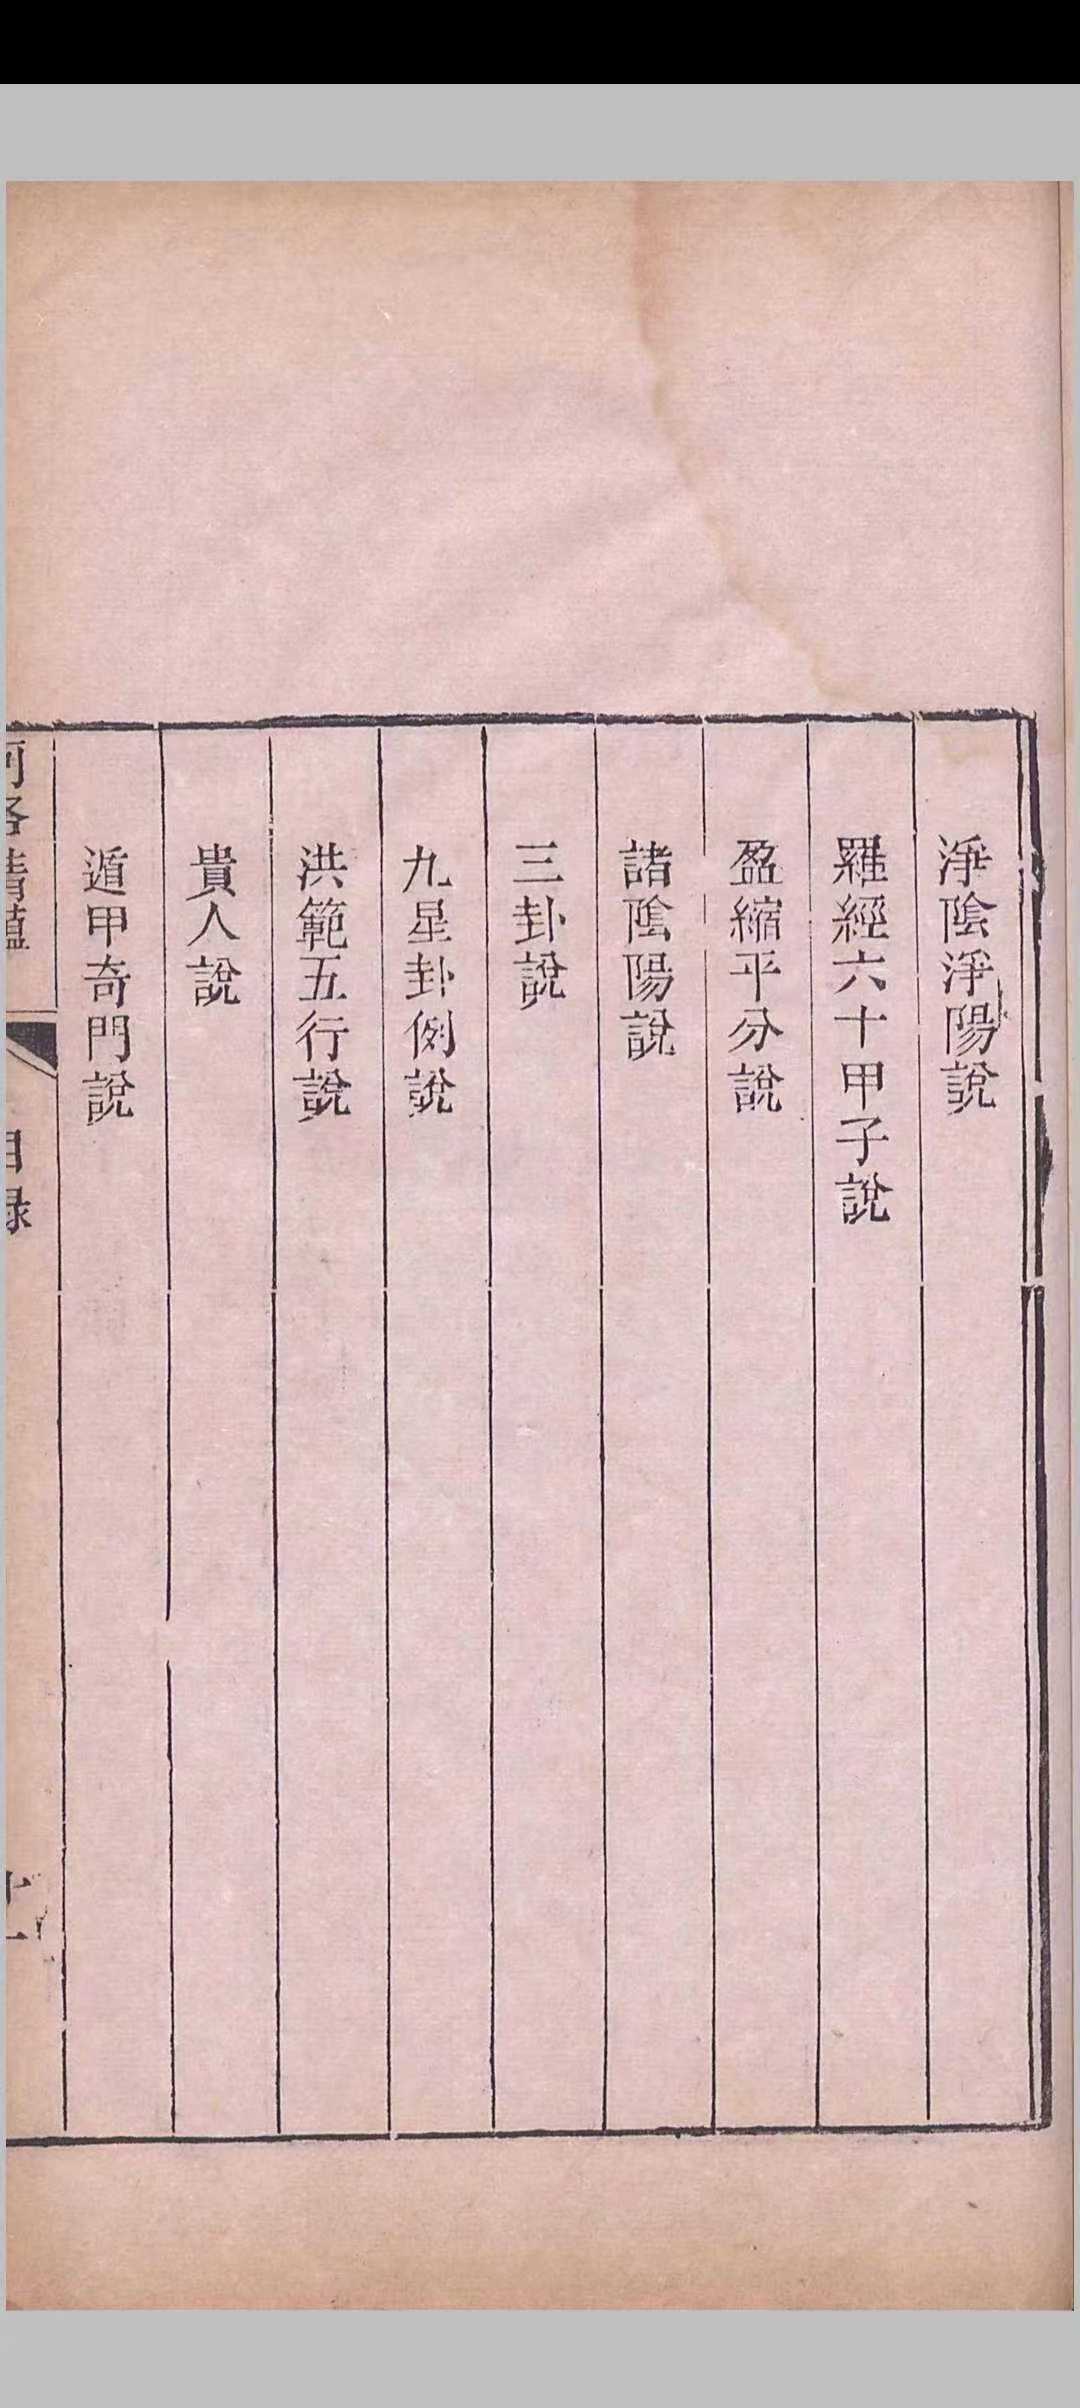 淨陰淨陽說
羅經六十甲子說
盈縮平分說
諸陰陽說
三卦說
九星卦例說
洪範五行說
貴人說
遁甲奇門說
河洛精蘊
目録